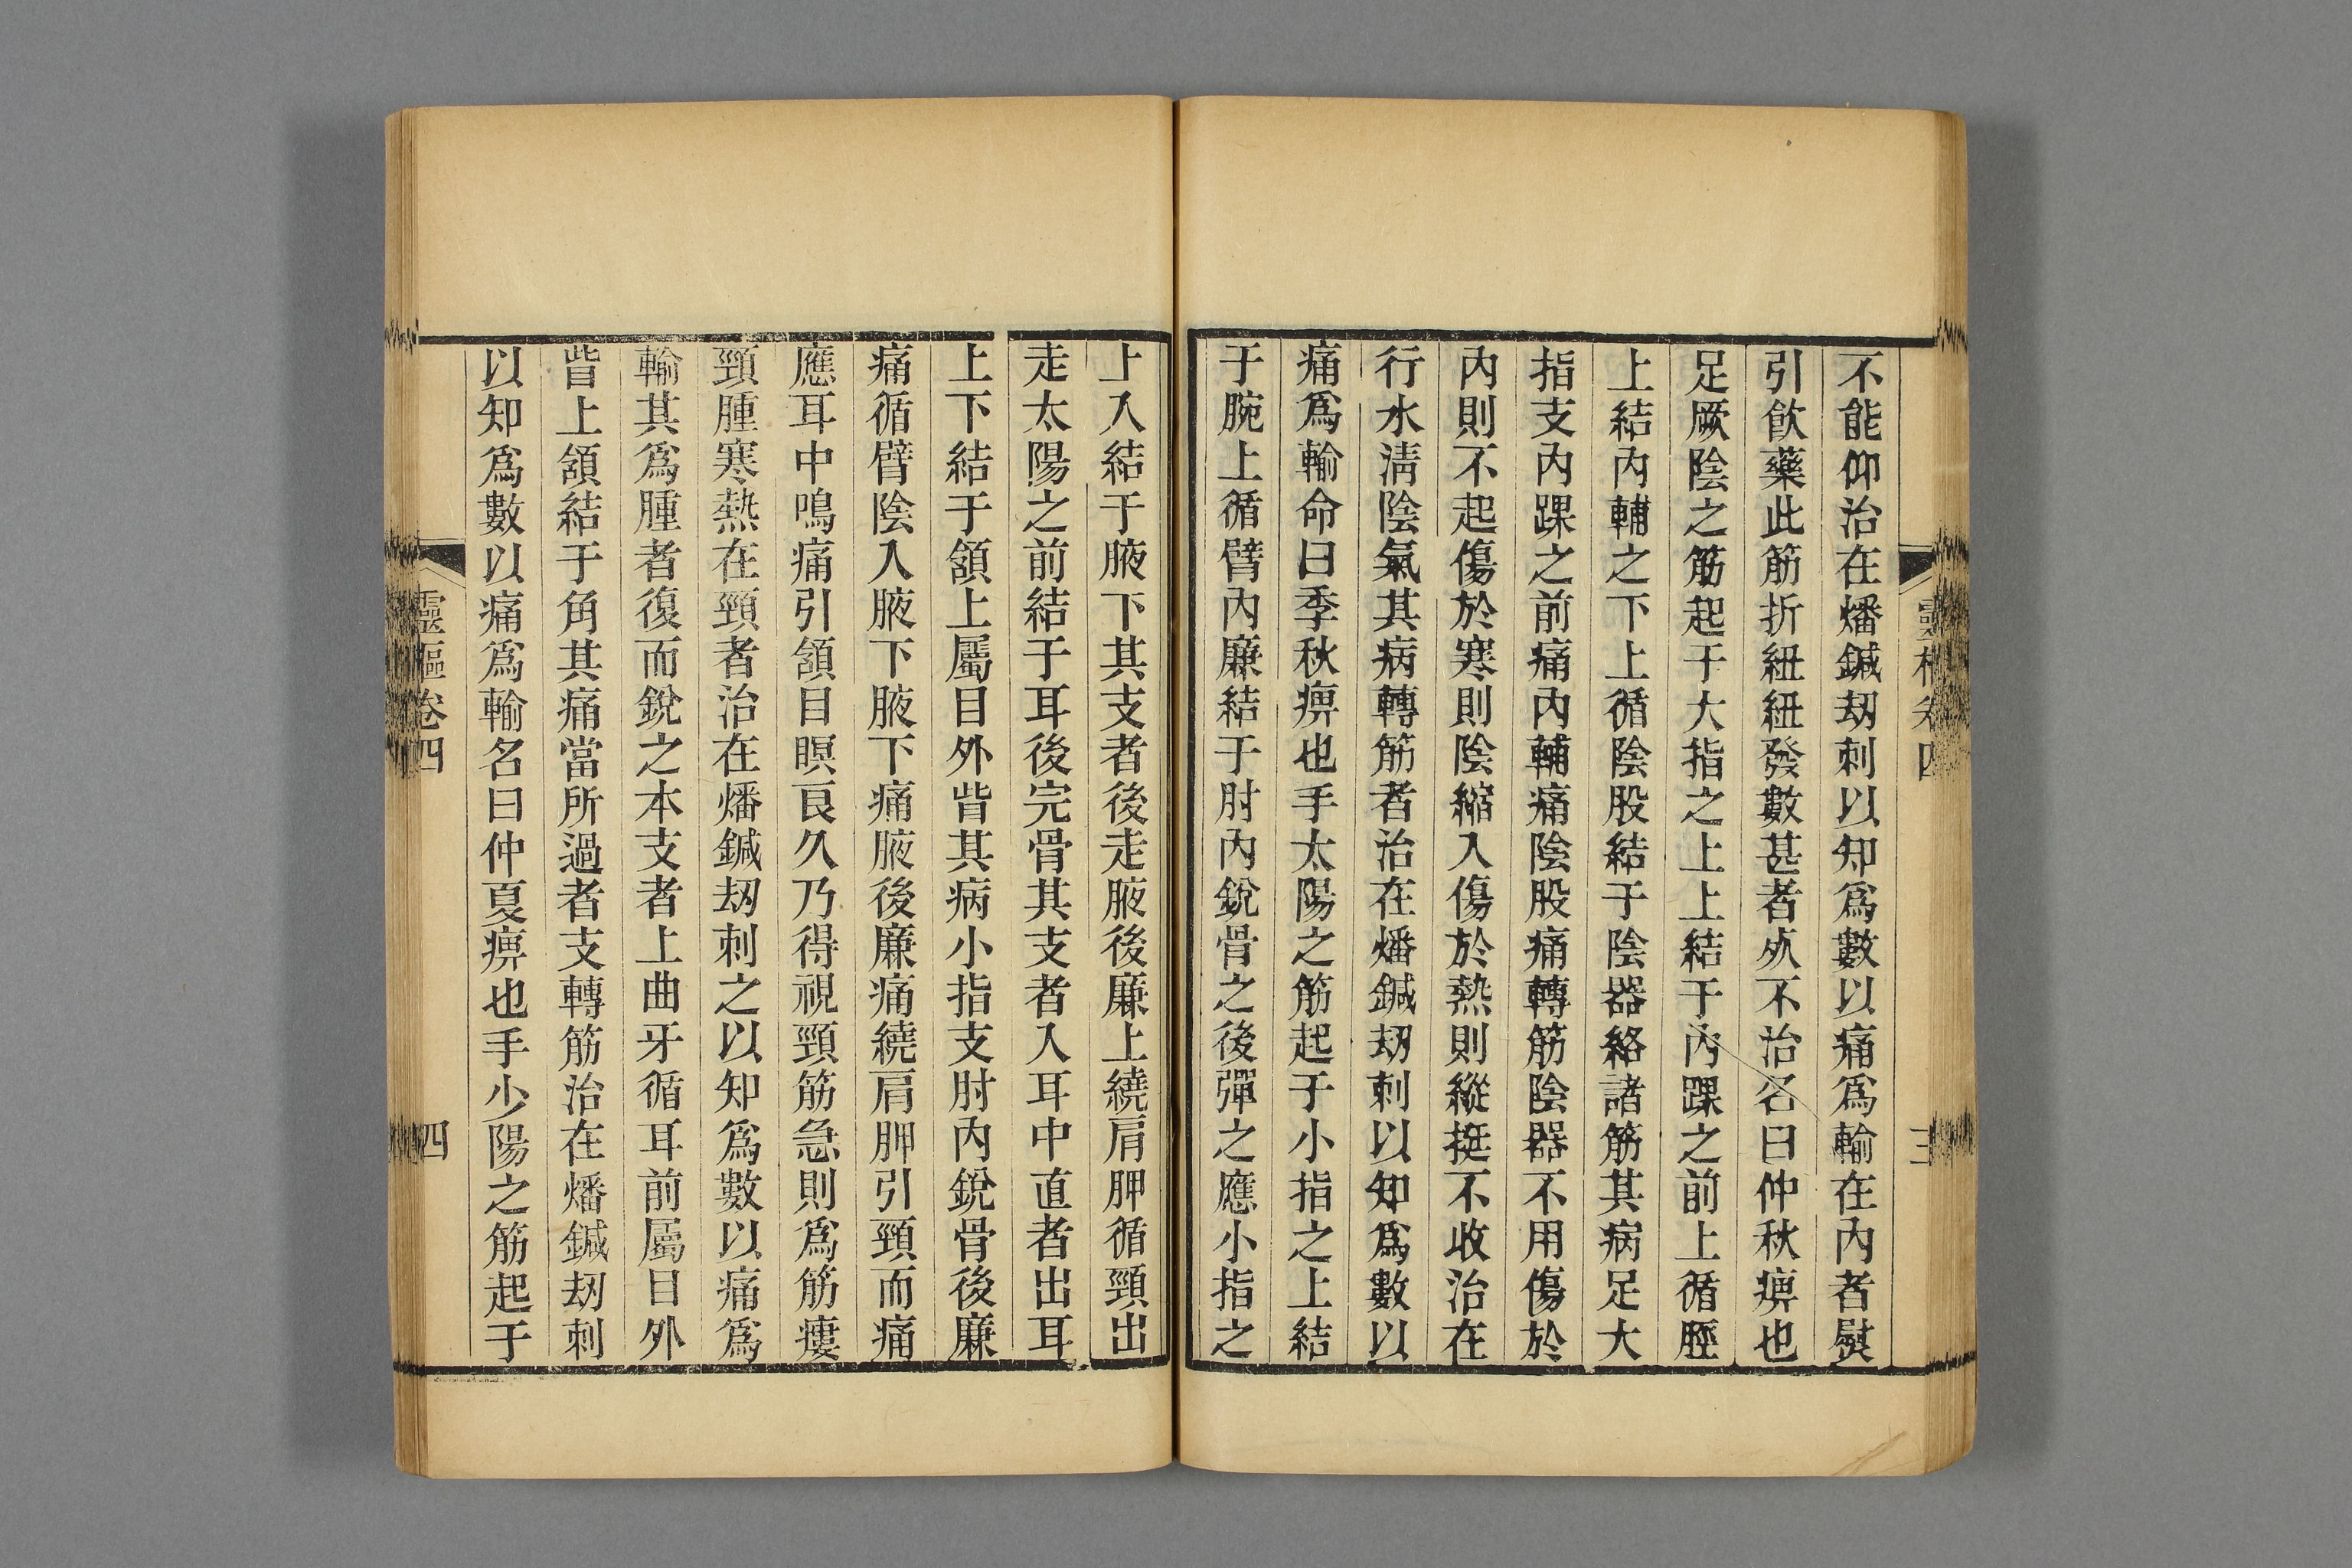 不能仰治在燔鍼刼刺以知爲數以痛爲輸在內者熨
引飮藥此筋折紐紐發數甚者死不治名曰仲秋痹也
足厥陰之筋起于大指之上上結于內踝之前上循脛
上結內輔之下上循陰股結于陰器絡諸筋其病足大
指支內踝之前痛內輔痛陰股痛轉筋陰器不用傷於
內則不起傷於寒則陰縮入傷於熱則縱挺不收治在
行水淸陰氣其病轉筋者治在燔鍼刼刺以知爲數以
痛爲輸命曰季秋痹也手太陽之筋起于小指之上結
于腕上循臂內廉結于肘內銳骨之後彈之應小指之
上入結于腋下其支者後走腋後廉上繞肩胛循頸出
走太陽之前結于耳後完骨其支者入耳中直者出耳
上下結于頷上屬目外眥其病小指支肘內銳骨後廉
痛循臂陰入腋下腋下痛腋後廉痛繞肩胛引頸而痛
應耳中鳴痛引頷目瞑良久乃得視頸筋急則爲筋瘻
頸腫寒熱在頸者治在燔鍼刼刺之以知爲數以痛爲
輸其爲腫者復而銳之本支者上曲牙循耳前屬目外
眥上頷結于角其痛當所過者支轉筋治在燔鍼刼刺
以知爲數以痛爲輸名曰仲夏痹也手少陽之筋起于
靈樞卷四
四